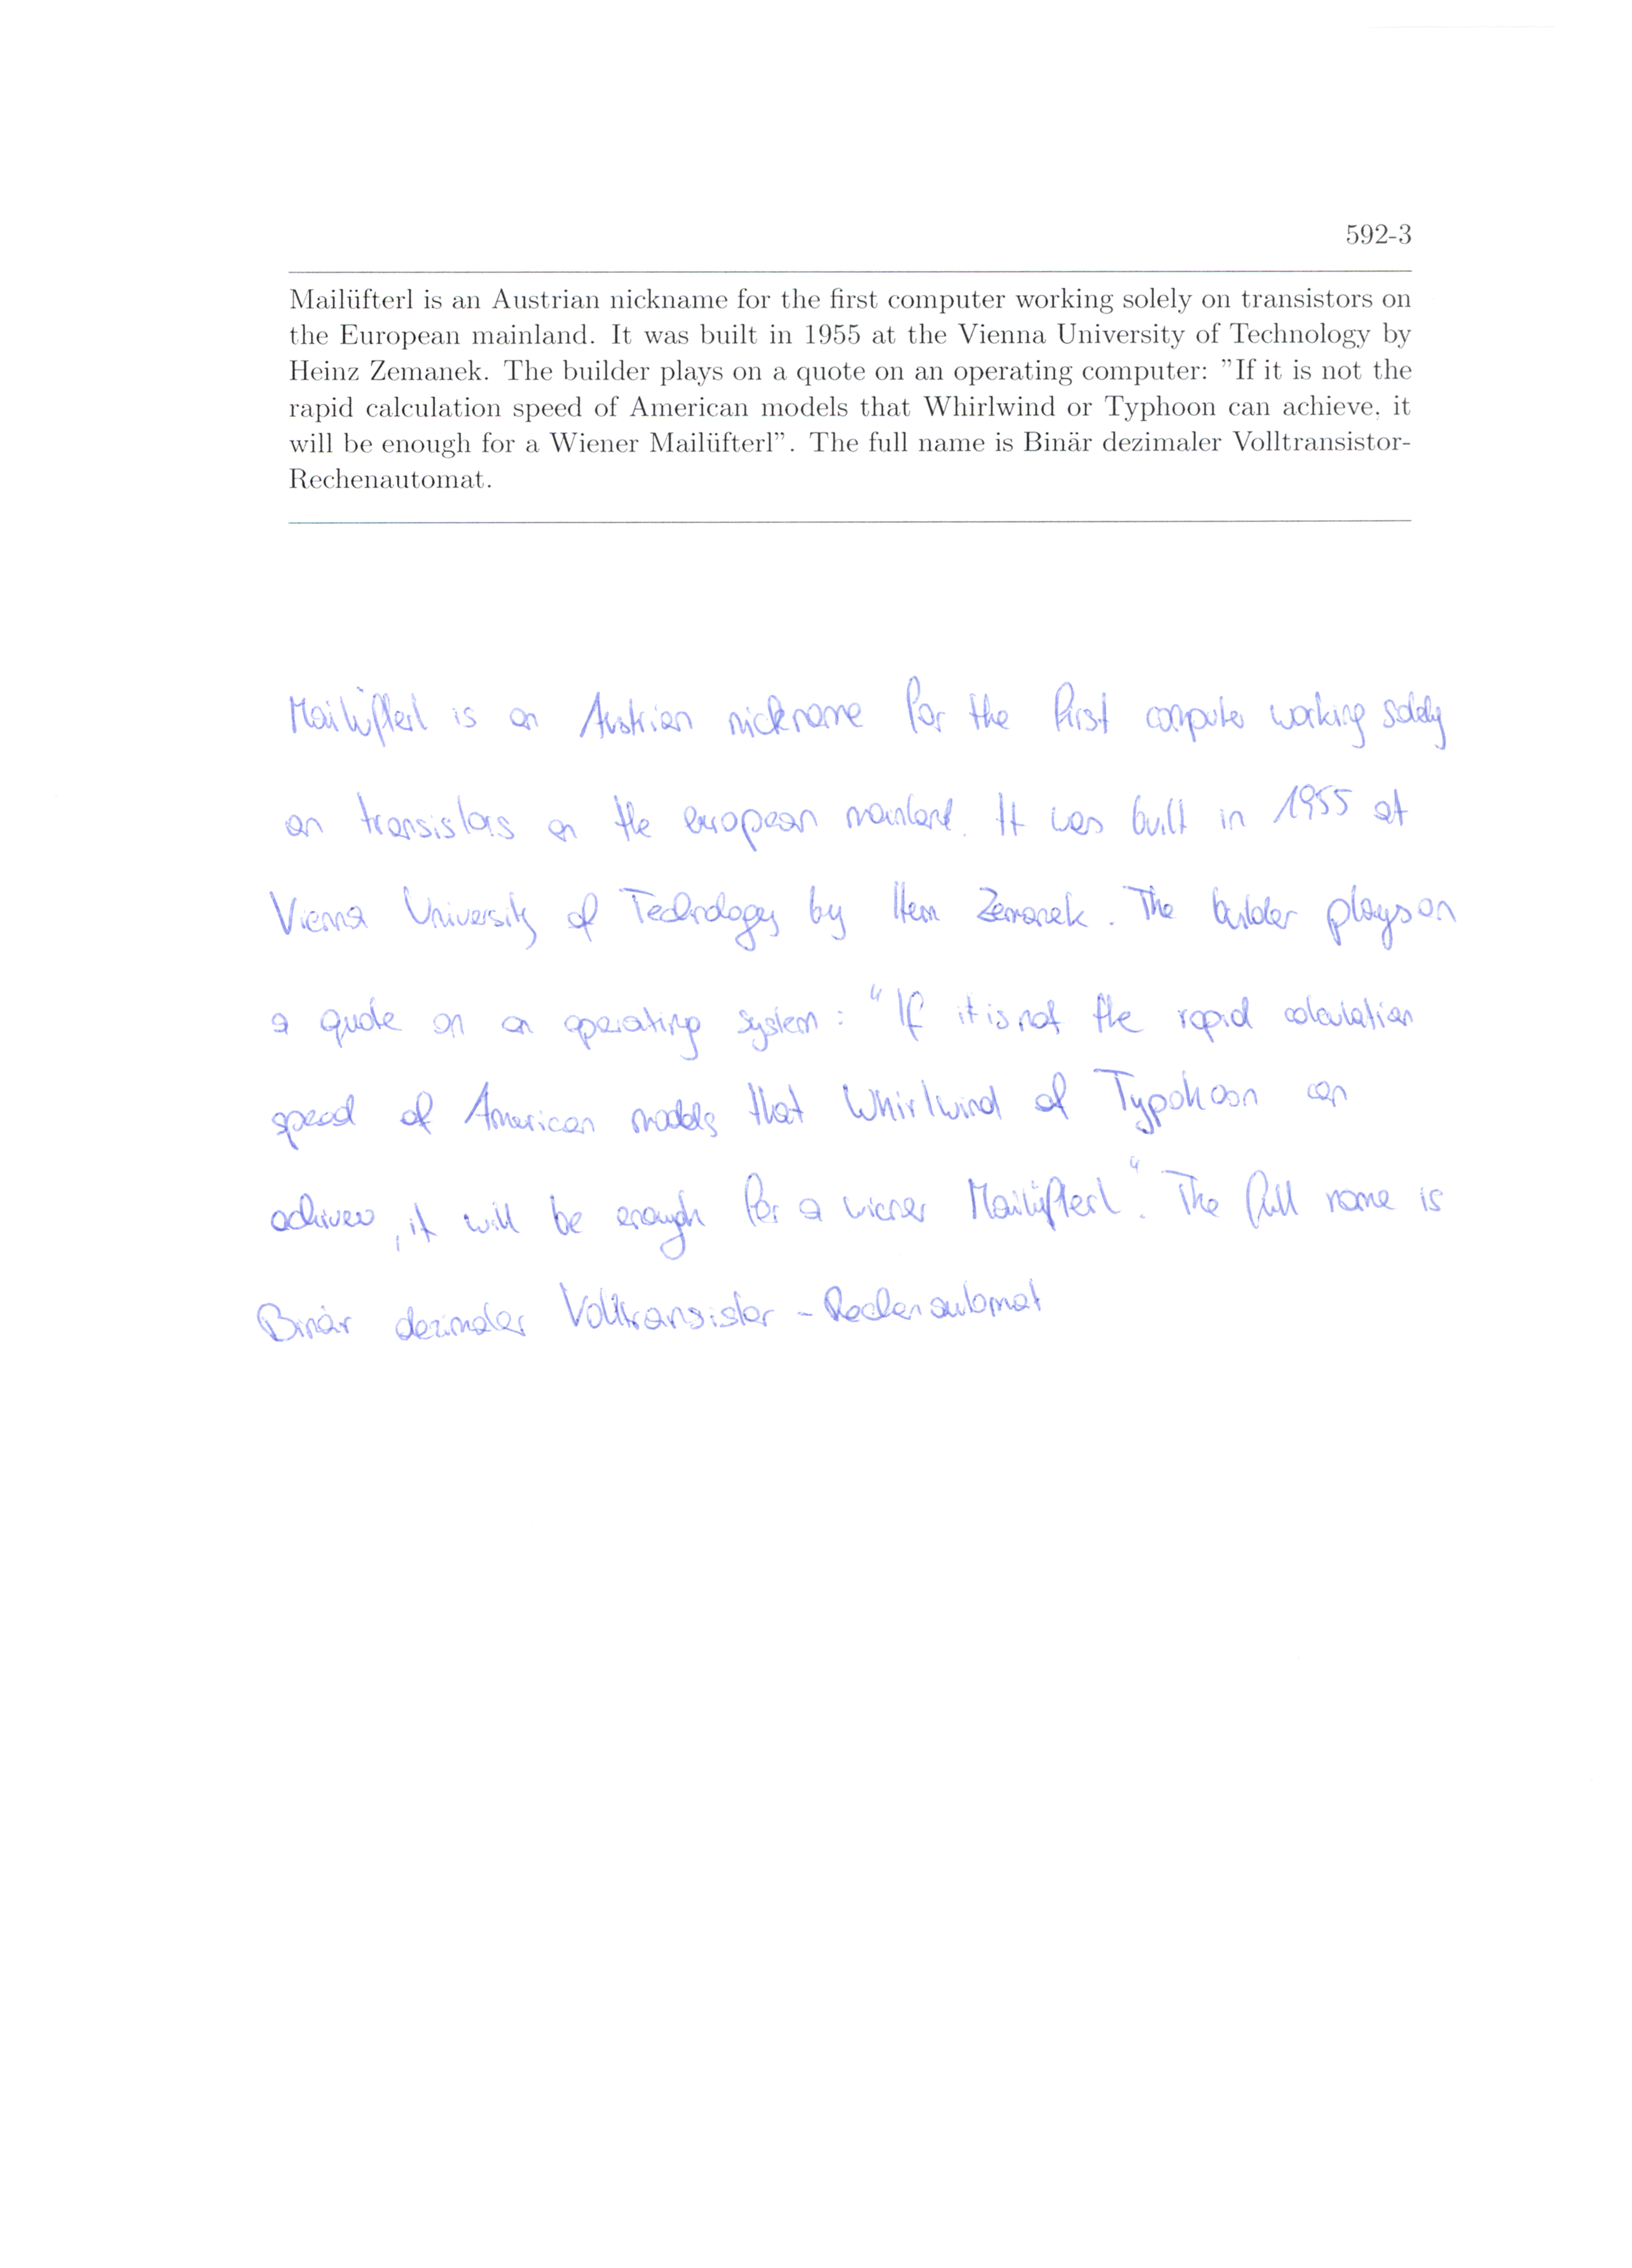 592-3
Mailüfterl is an Austrian nickname for the first computer working solely on transistors on
the European mainland. It was built in 1955 at the Vienna University of Technology by
Heinz Zemanek. The builder plays on a quote on an operating computer: ”If it is not the
rapid calculation speed of American models that Whirlwind or Typhoon can achieve, it
will be enough for a Wiener Mailüfterl”. The full name is Binär dezimaler Volltransistor-
Rechenautomat.
Mailüfterl is an Austrian nickname for the first computer working solely
on transistors on the european mainland. It was built in 1955 at
Vienna University of Technology by Zemanek. The builder plays on
a quote on an operating system: “If it is not the rapid calculation
speed of American models that Whirlwind of Typohoon can
, it will be enough for a wiener Mailüfterl“. The full name is
Binär dezimaler Volltransistor - Rechenautomat